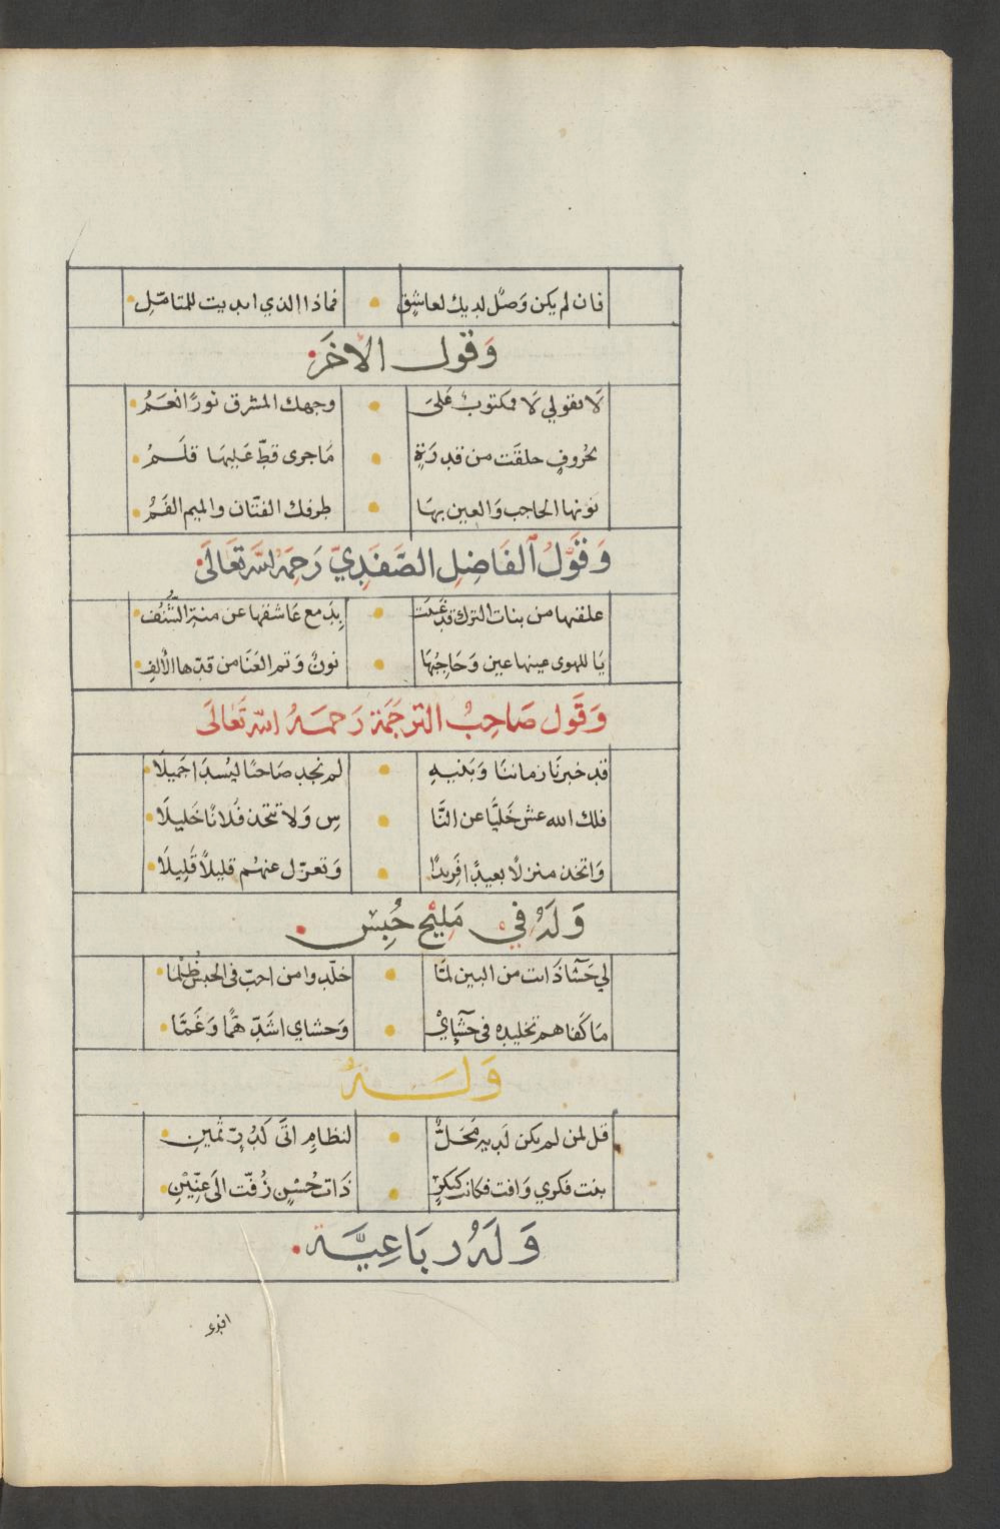 فان لم يكن وَصْل لديك لعاشقٍ • فماذا الذي ابديت للمتامّلِ
وَقول الاخَر
لَا تقولي لَا فمكتوبٌ عَلىَ • وجهك المشرق نورًا نعَمُ
بحُروفٍ خلقَت من قدرَةٍ • مَا جرى قطّ عَليهَا قلَمُ
نونها الحاجب وَالعين بهَا • طرفك الفتّان والميم الفَمُ
وَقَوْلُ الفَاضِلِ الصَّفَدِيّ رَحِمَهُ اللّه تعَالَى
علقتها من بنات الترك قد غنيَت • بِدَمع عَاشقها عن منة الشُّنُف
يَا للهوى عينها عين وَحَاجبُهَا • نونٌ وَتم العَنَا من قدّها الألفِ
وَقَول صَاحِبُ الترجَمَة رَحمَهُ اللّه تَعَالَى
قد خبرنَا زماننَا وَبَنيهِ • لم نجد صَاحبًا ليُسدَا جَميلَا
فلك الله عش خَليًّا عن النَّا • سِ وَلا تتخذ فَلانًا خَليلَا
وَاتخذ منزلًا بعيدًا فَريدًا • وَتعزّل عنهُم قليلًا قَليلَا
وَلَهُ في مَليْح حُبِسْ
لي حَشَا ذَات من البين لمَّا • خلّدوا من احبّ في الحبسْ ظلْمَا
مَا كَفَاهم تخليده في حَشَايْ • وَحشاي اشَدّ هَمًّا وَغَمَّا
وَلَهُ
قل لمن لم يكن لَديه مَحَلٌّ • لنظامٍ اتَى كَدُرٍّ ثمينِ
بنت فكري وَافت فكانت كبكرٍ • ذَات حُسْنٍ زُفّت الَى عِنّيْنِ
وَلَهُ ربَاعِيَّة
افدي